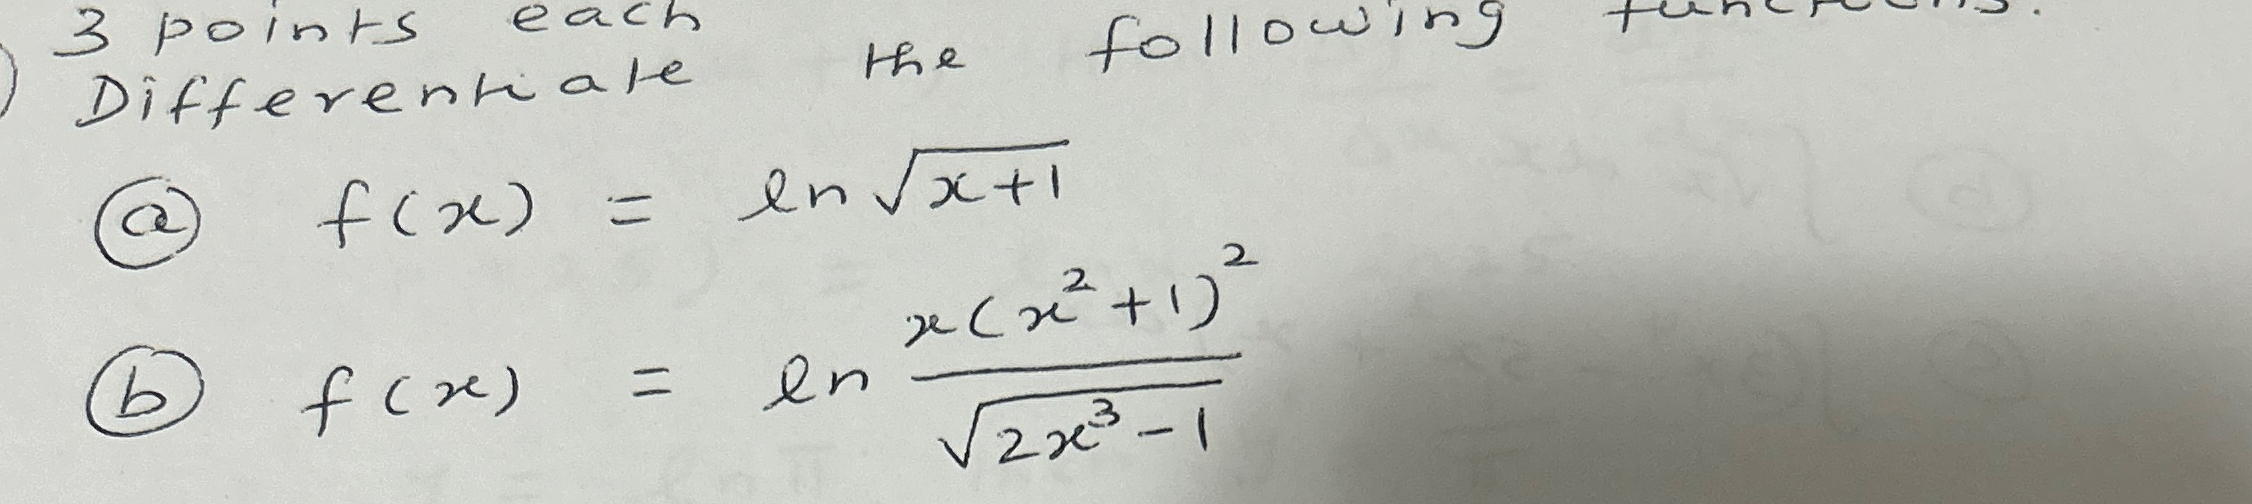 3 points each
Differentiate the following functions.
(a) f(x) = ln √(x+1)
(b) f(x) = ln x(x²+1)² / √(2x³-1)